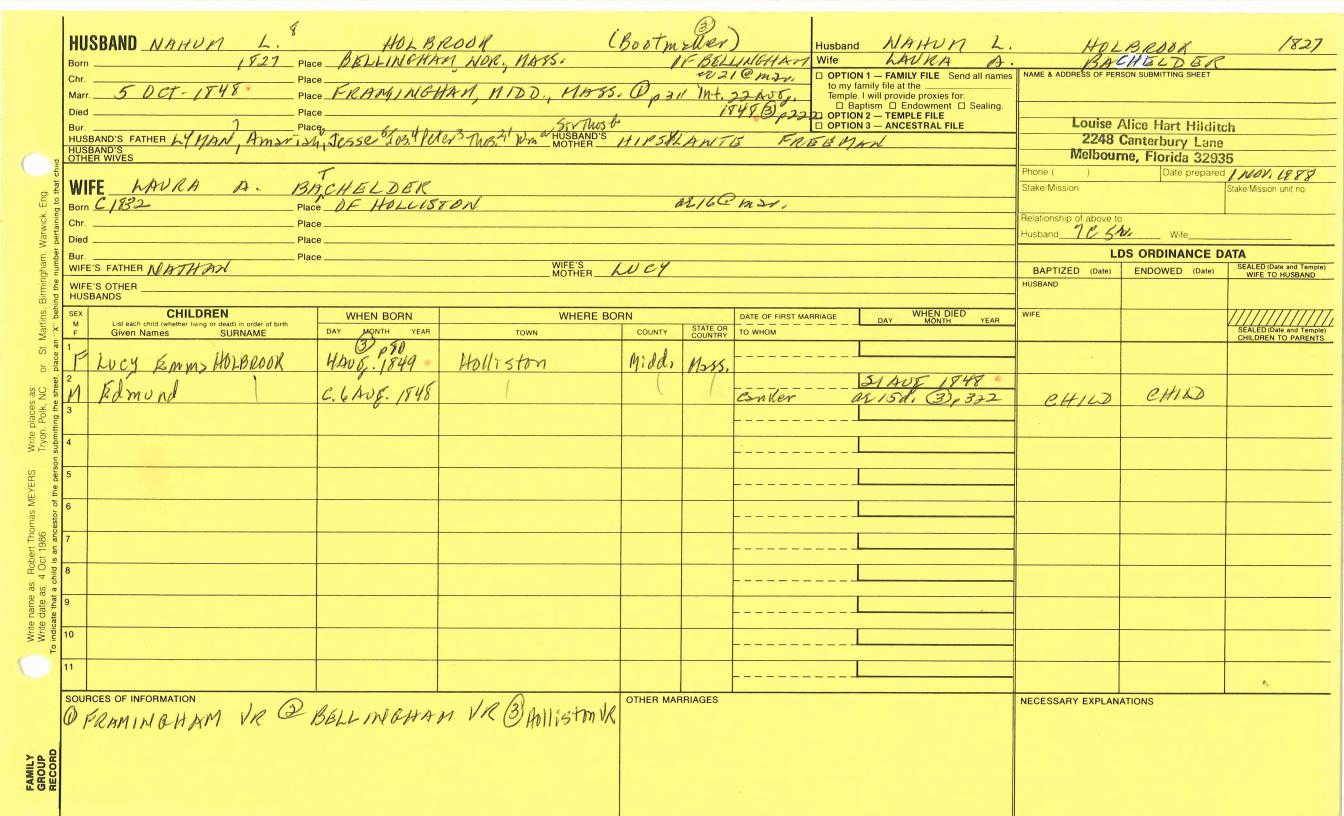 HUSBAND NAHUM L. 8 HOLBROOK (Bootmaker) ③
Born 1827 Place BELLINGHAM, WOR., MASS. OF BELLINGHAM
Chr. Place ae 21 @ mar.
Marr. 5 OCT. 1848 Place FRAMINGHAM, MIDD., MASS. ① p311 Int. 22 AUG.
Died Place 1848 ③ p222
Bur. Place
HUSBAND'S FATHER LYMAN, Amariah, Jesse HUSBAND'S MOTHER HIPSILANTE FREEMAN
HUSBAND'S OTHER WIVES
WIFE LAURA A. BATCHELDER
Born C 1832 Place OF HOLLISTON ae 16 @ mar.
Chr. Place
Died Place
Bur. Place
WIFE'S FATHER NATHAN WIFE'S MOTHER LUCY
WIFE'S OTHER HUSBANDS
Husband NAHUM L. HOLBROOK 1827
Wife LAURA A. BACHELDER
☐ OPTION 1 — FAMILY FILE Send all names
to my family file at the
Temple. I will provide proxies for:
☐ Baptism ☐ Endowment ☐ Sealing.
☐ OPTION 2 — TEMPLE FILE
☐ OPTION 3 — ANCESTRAL FILE
NAME & ADDRESS OF PERSON SUBMITTING SHEET
Louise Alice Hart Hilditch
2248 Canterbury Lane
Melbourne, Florida 32935
Phone ( ) Date prepared 1 NOV. 1988
Stake/Mission Stake/Mission unit no.
Relationship of above to
Husband Wife
LDS ORDINANCE DATA
BAPTIZED (Date) ENDOWED (Date) SEALED (Date and Temple) WIFE TO HUSBAND
HUSBAND
WIFE
SEALED (Date and Temple) CHILDREN TO PARENTS
SEX M F
CHILDREN
List each child (whether living or dead) in order of birth
Given Names SURNAME
WHEN BORN
DAY MONTH YEAR
WHERE BORN
TOWN COUNTY STATE OR COUNTRY
DATE OF FIRST MARRIAGE
TO WHOM
WHEN DIED
DAY MONTH YEAR
③ p80
1 F LUCY Emma HOLBROOK 4 AUG. 1849 Holliston Midd. Mass.
21 AUG 1848
2 M Edmund C. 6 AUG. 1848 Canker ae 15d. ③ p322 CHILD CHILD
3
4
5
6
7
8
9
10
11
SOURCES OF INFORMATION
① FRAMINGHAM VR ② BELLINGHAM VR ③ Holliston VR
OTHER MARRIAGES
NECESSARY EXPLANATIONS
Write name as: Robert Thomas MEYERS Write places as: Tryon, Polk, NC or St Martins, Birmingham, Warwick, Eng
Write date as: 4 Oct 1986
To indicate that a child is an ancestor of the person submitting the sheet, place an "X" behind the number pertaining to that child
FAMILY
GROUP
RECORD